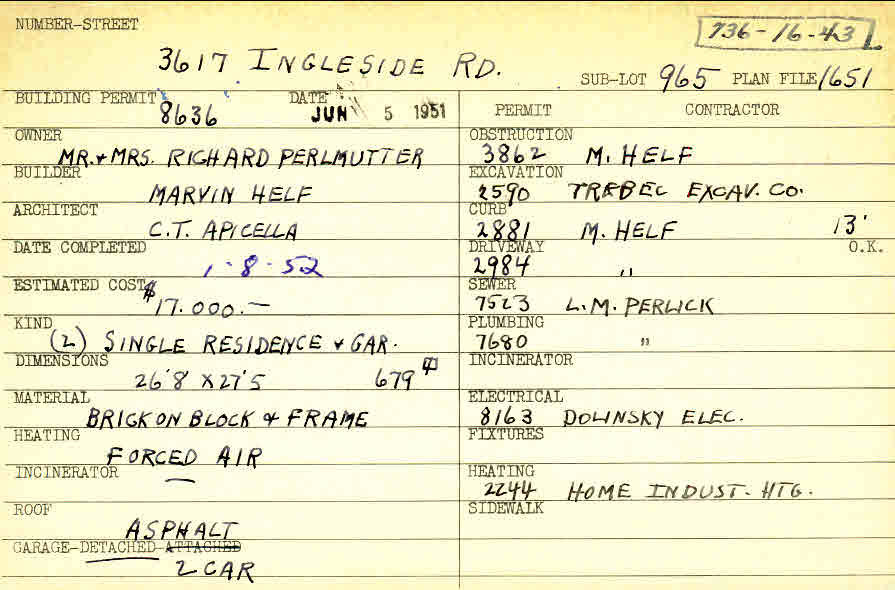 NUMBER-STREET
736-16-43
3617 INGLESIDE RD.
SUB-LOT 965 PLAN FILE 1651
BUILDING PERMIT 8636 DATE JUN 5 1951
PERMIT CONTRACTOR
OWNER
MR. & MRS. RICHARD PERLMUTTER
BUILDER
MARVIN HELF
ARCHITECT
C.T. APICELLA
DATE COMPLETED
1-8-52
ESTIMATED COST
$17.000.—
KIND
(2) SINGLE RESIDENCE & GAR.
DIMENSIONS
26'8 X 27'5 679
MATERIAL
BRICK ON BLOCK & FRAME
HEATING
FORCED AIR
INCINERATOR
—
ROOF
ASPHALT
GARAGE-DETACHED-ATTACHED
2 CAR
OBSTRUCTION
3862 M. HELF
EXCAVATION
2590 TREBEC EXCAV. CO.
CURB
2881 M. HELF 13'
DRIVEWAY O.K.
2984 "
SEWER
7523 L.M. PERLICK
PLUMBING
7680 "
INCINERATOR
ELECTRICAL
8163 DOLINSKY ELEC.
FIXTURES
HEATING
2244 HOME INDUST. HTG.
SIDEWALK